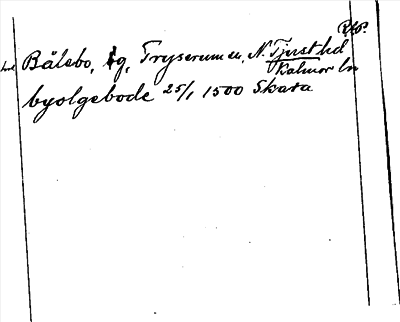 Bålebo, tg, Tryserum sn, N. Tjust hd
Kalmar ln
byolgebode 25/1 1500 Skara